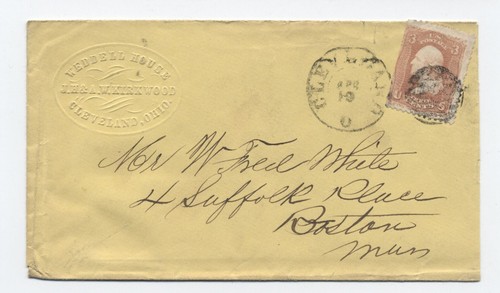 WEDDELL HOUSE
KIRKWOOD
CLEVELAND, OHIO.
CLEVELAND
APR
10
O
3 3
Mr W Fred White
4 Suffolk Place
Boston
Mass